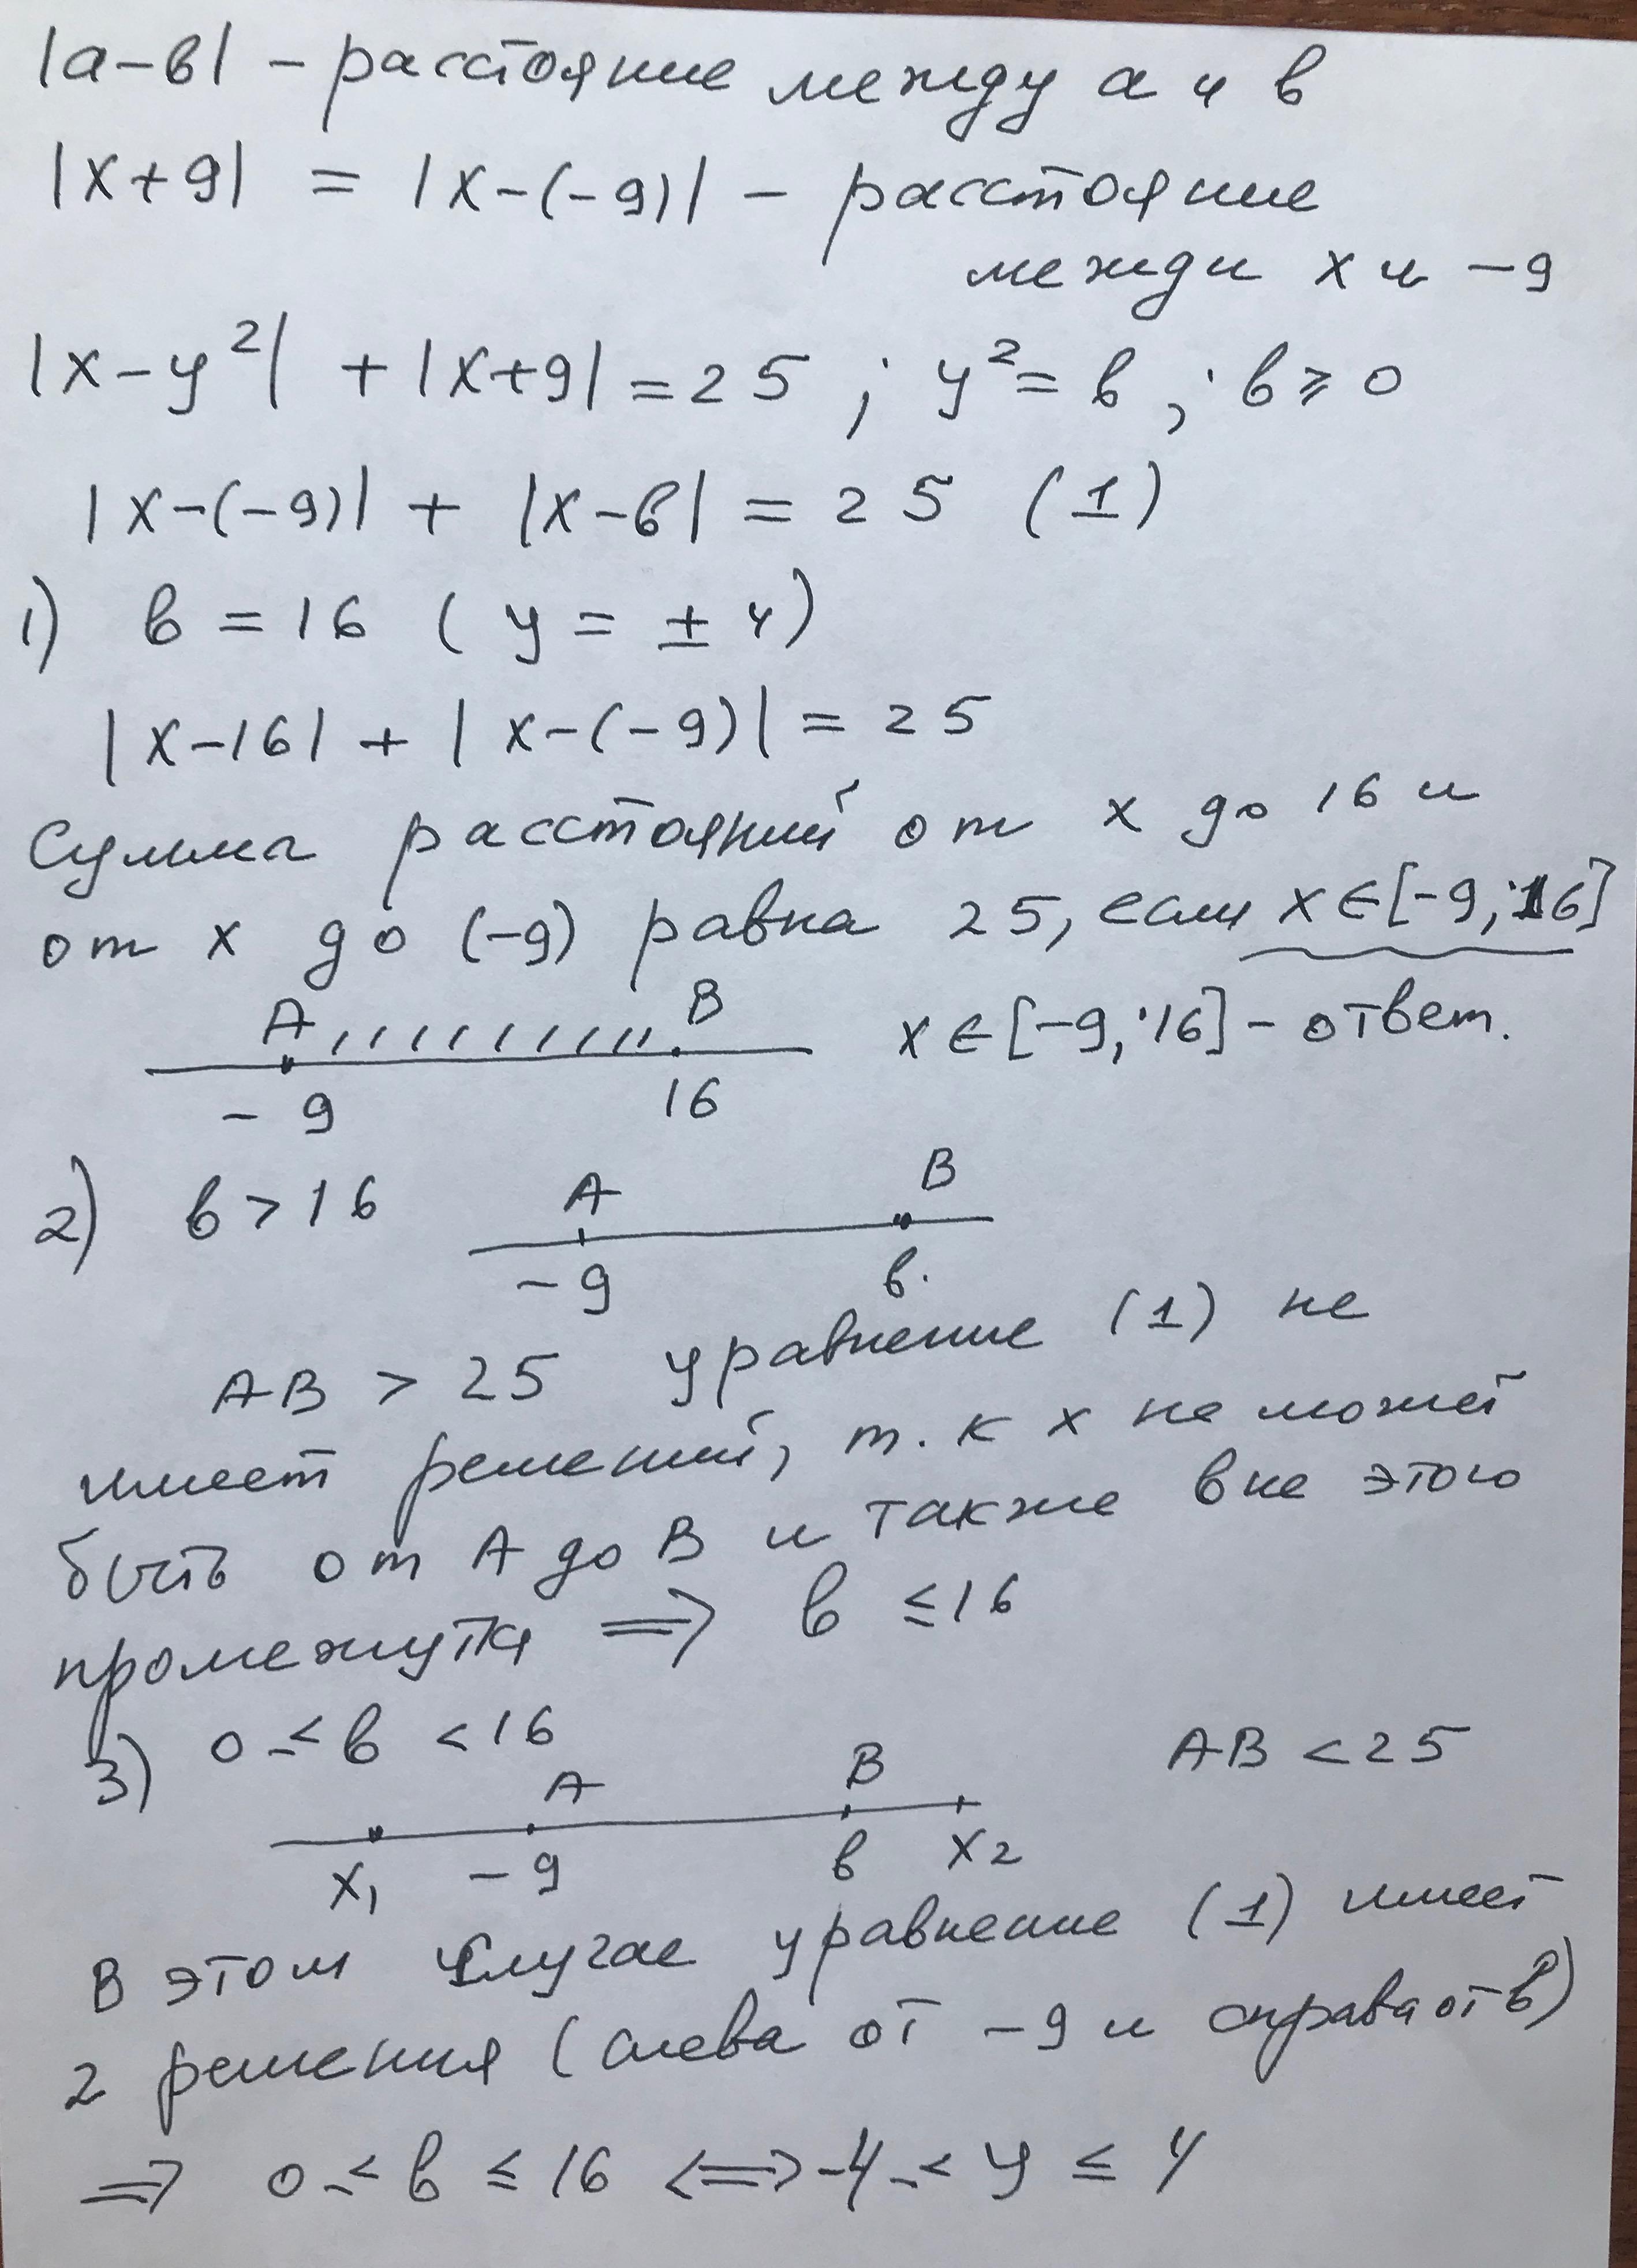 |a-в| - расстояние между a и в
|x+9| = |x-(-9)| - расстояние
между x и -9
|x-y²| + |x+9| = 25 ; y² = в ; в ≥ 0
|x-(-9)| + |x-в| = 25 (1)
1) в = 16 ( y = ± 4)
|x-16| + | x-(-9)| = 25
Сумма расстояний от x до 16 и
от x до (-9) равна 25, если x ∈ [-9; 16]
A B
x ∈ [-9; 16] - ответ.
-9 16
2) в > 16 A B
-9 в.
AB > 25 уравнение (1) не
имеет решений, т.к x не может
быть от A до B и также вне этого
промежутка ⟹ в ≤ 16
3) 0 ≤ в < 16 A B AB < 25
x₁ -9 в x₂
В этом случае уравнение (1) имеет
2 решения (слева от -9 и справа от в)
⟹ 0 ≤ в ≤ 16 ⟺ -4 ≤ y ≤ 4